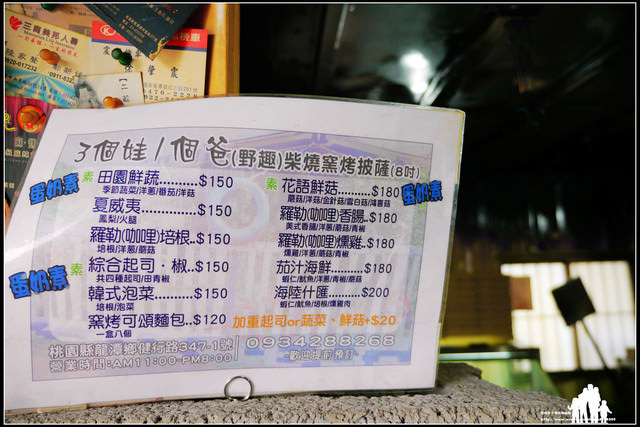 三商美邦人壽
3個娃1個爸(野趣)柴燒窯烤披薩(8吋)
蛋奶素
素 田園鮮蔬..........$150
季節蔬菜/洋蔥/番茄/洋菇
夏威夷..............$150
鳳梨/火腿
羅勒(咖哩)培根..$150
培根/洋蔥/蘑菇
蛋奶素
素 綜合起司．椒..$150
共四種起司/田青椒
韓式泡菜...........$150
培根/泡菜
窯烤可頌麵包..$120
一盒八個
素 花語鮮菇..........$180
蘑菇/洋菇/金針菇/雪白菇/鴻喜菇
蛋奶素
羅勒(咖哩)香腸..$180
美式香腸/洋蔥/蘑菇/青椒
羅勒(咖哩)燻雞..$180
燻雞/洋蔥/蘑菇/青椒
茄汁海鮮..........$180
蝦仁/魷魚/洋蔥/青椒/蘑菇
海陸什匯..........$200
蝦仁/魷魚/培根/燻雞肉
加重起司or蔬菜、鮮菇+$20
桃園縣龍潭鄉健行路347-1號
營業時間:AM11:00-PM8:00
0934288268
-歡迎提前預訂-